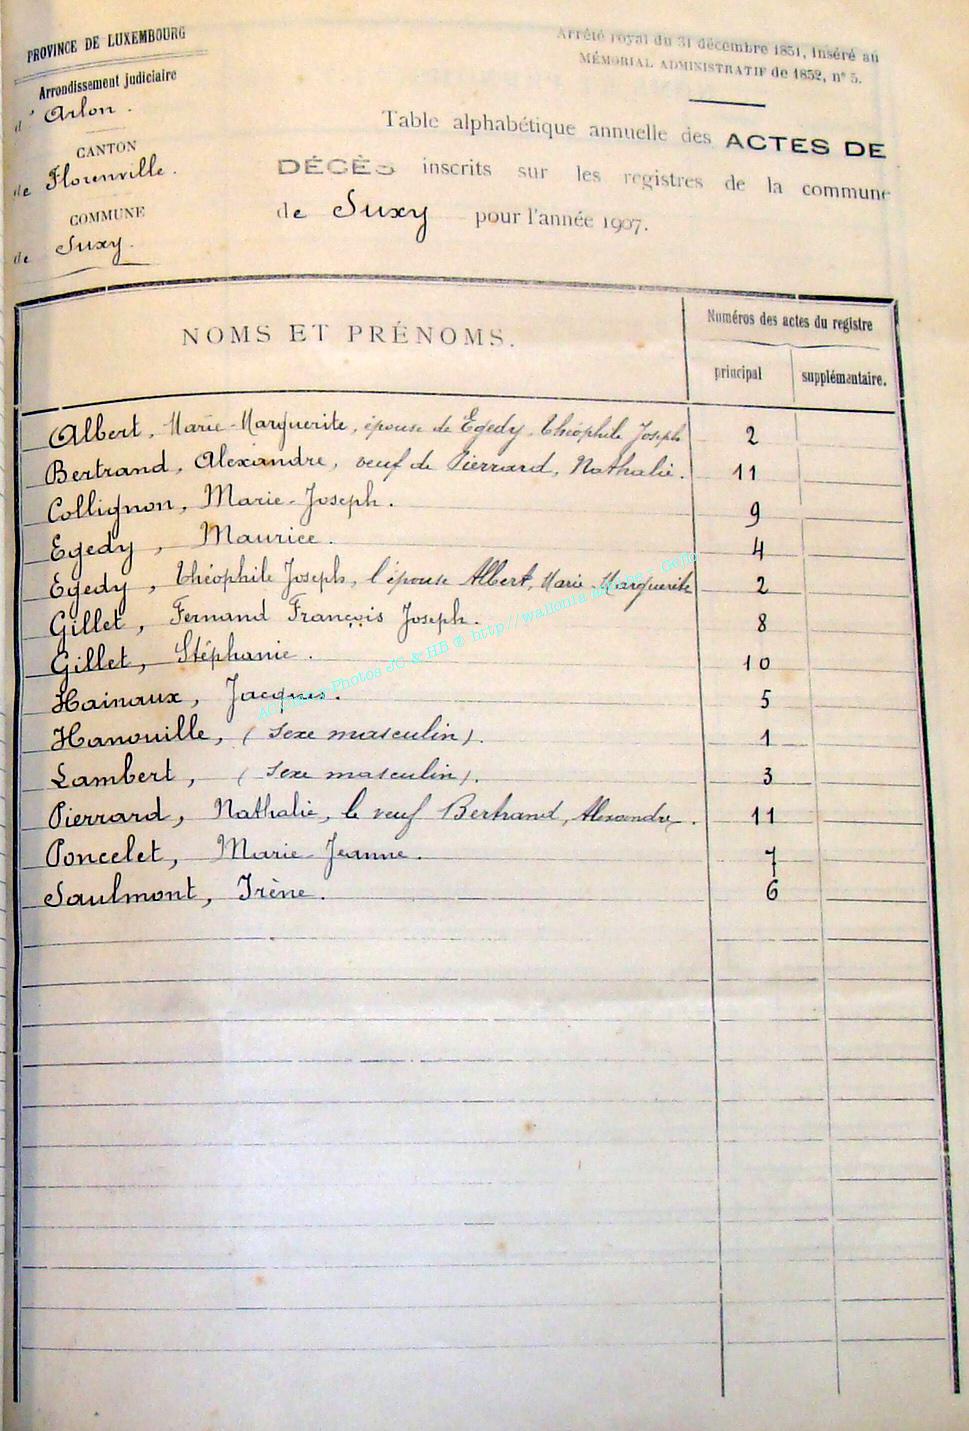 PROVINCE DE LUXEMBOURG
Arrondissement judiciaire
d'Arlon.
CANTON
de Florenville.
COMMUNE
de Suxy.
Arrêté royal du 31 décembre 1851, inséré au
MÉMORIAL ADMINISTRATIF de 1852, n° 5.
Table alphabétique annuelle des ACTES DE
DÉCÈS inscrits sur les registres de la commune
de Suxy pour l'année 1907.
NOMS ET PRÉNOMS.
Numéros des actes du registre
principal supplémentaire.
Albert, Marie-Marguerite, épouse de Egedy, Théophile Joseph 2
Bertrand, Alexandre, veuf de Pierrard, Nathalie. 11
Collignon, Marie-Joseph. 9
Egedy, Maurice. 4
Egedy, Théophile Joseph, l'épouse Albert, Marie-Marguerite 2
Gillet, Fernand François Joseph. 8
Gillet, Stéphanie. 10
Hainaux, Jacques. 5
Hanouille, (sexe masculin). 1
Lambert, (sexe masculin). 3
Pierrard, Nathalie, le veuf Bertrand, Alexandre. 11
Poncelet, Marie-Jeanne. 7
Saulmont, Irène. 6
Photos JC & HB @ http//wallonia